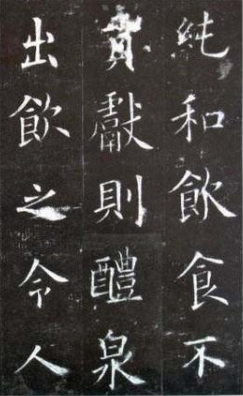 純和飲食不
貢獻則醴泉
出飲之令人